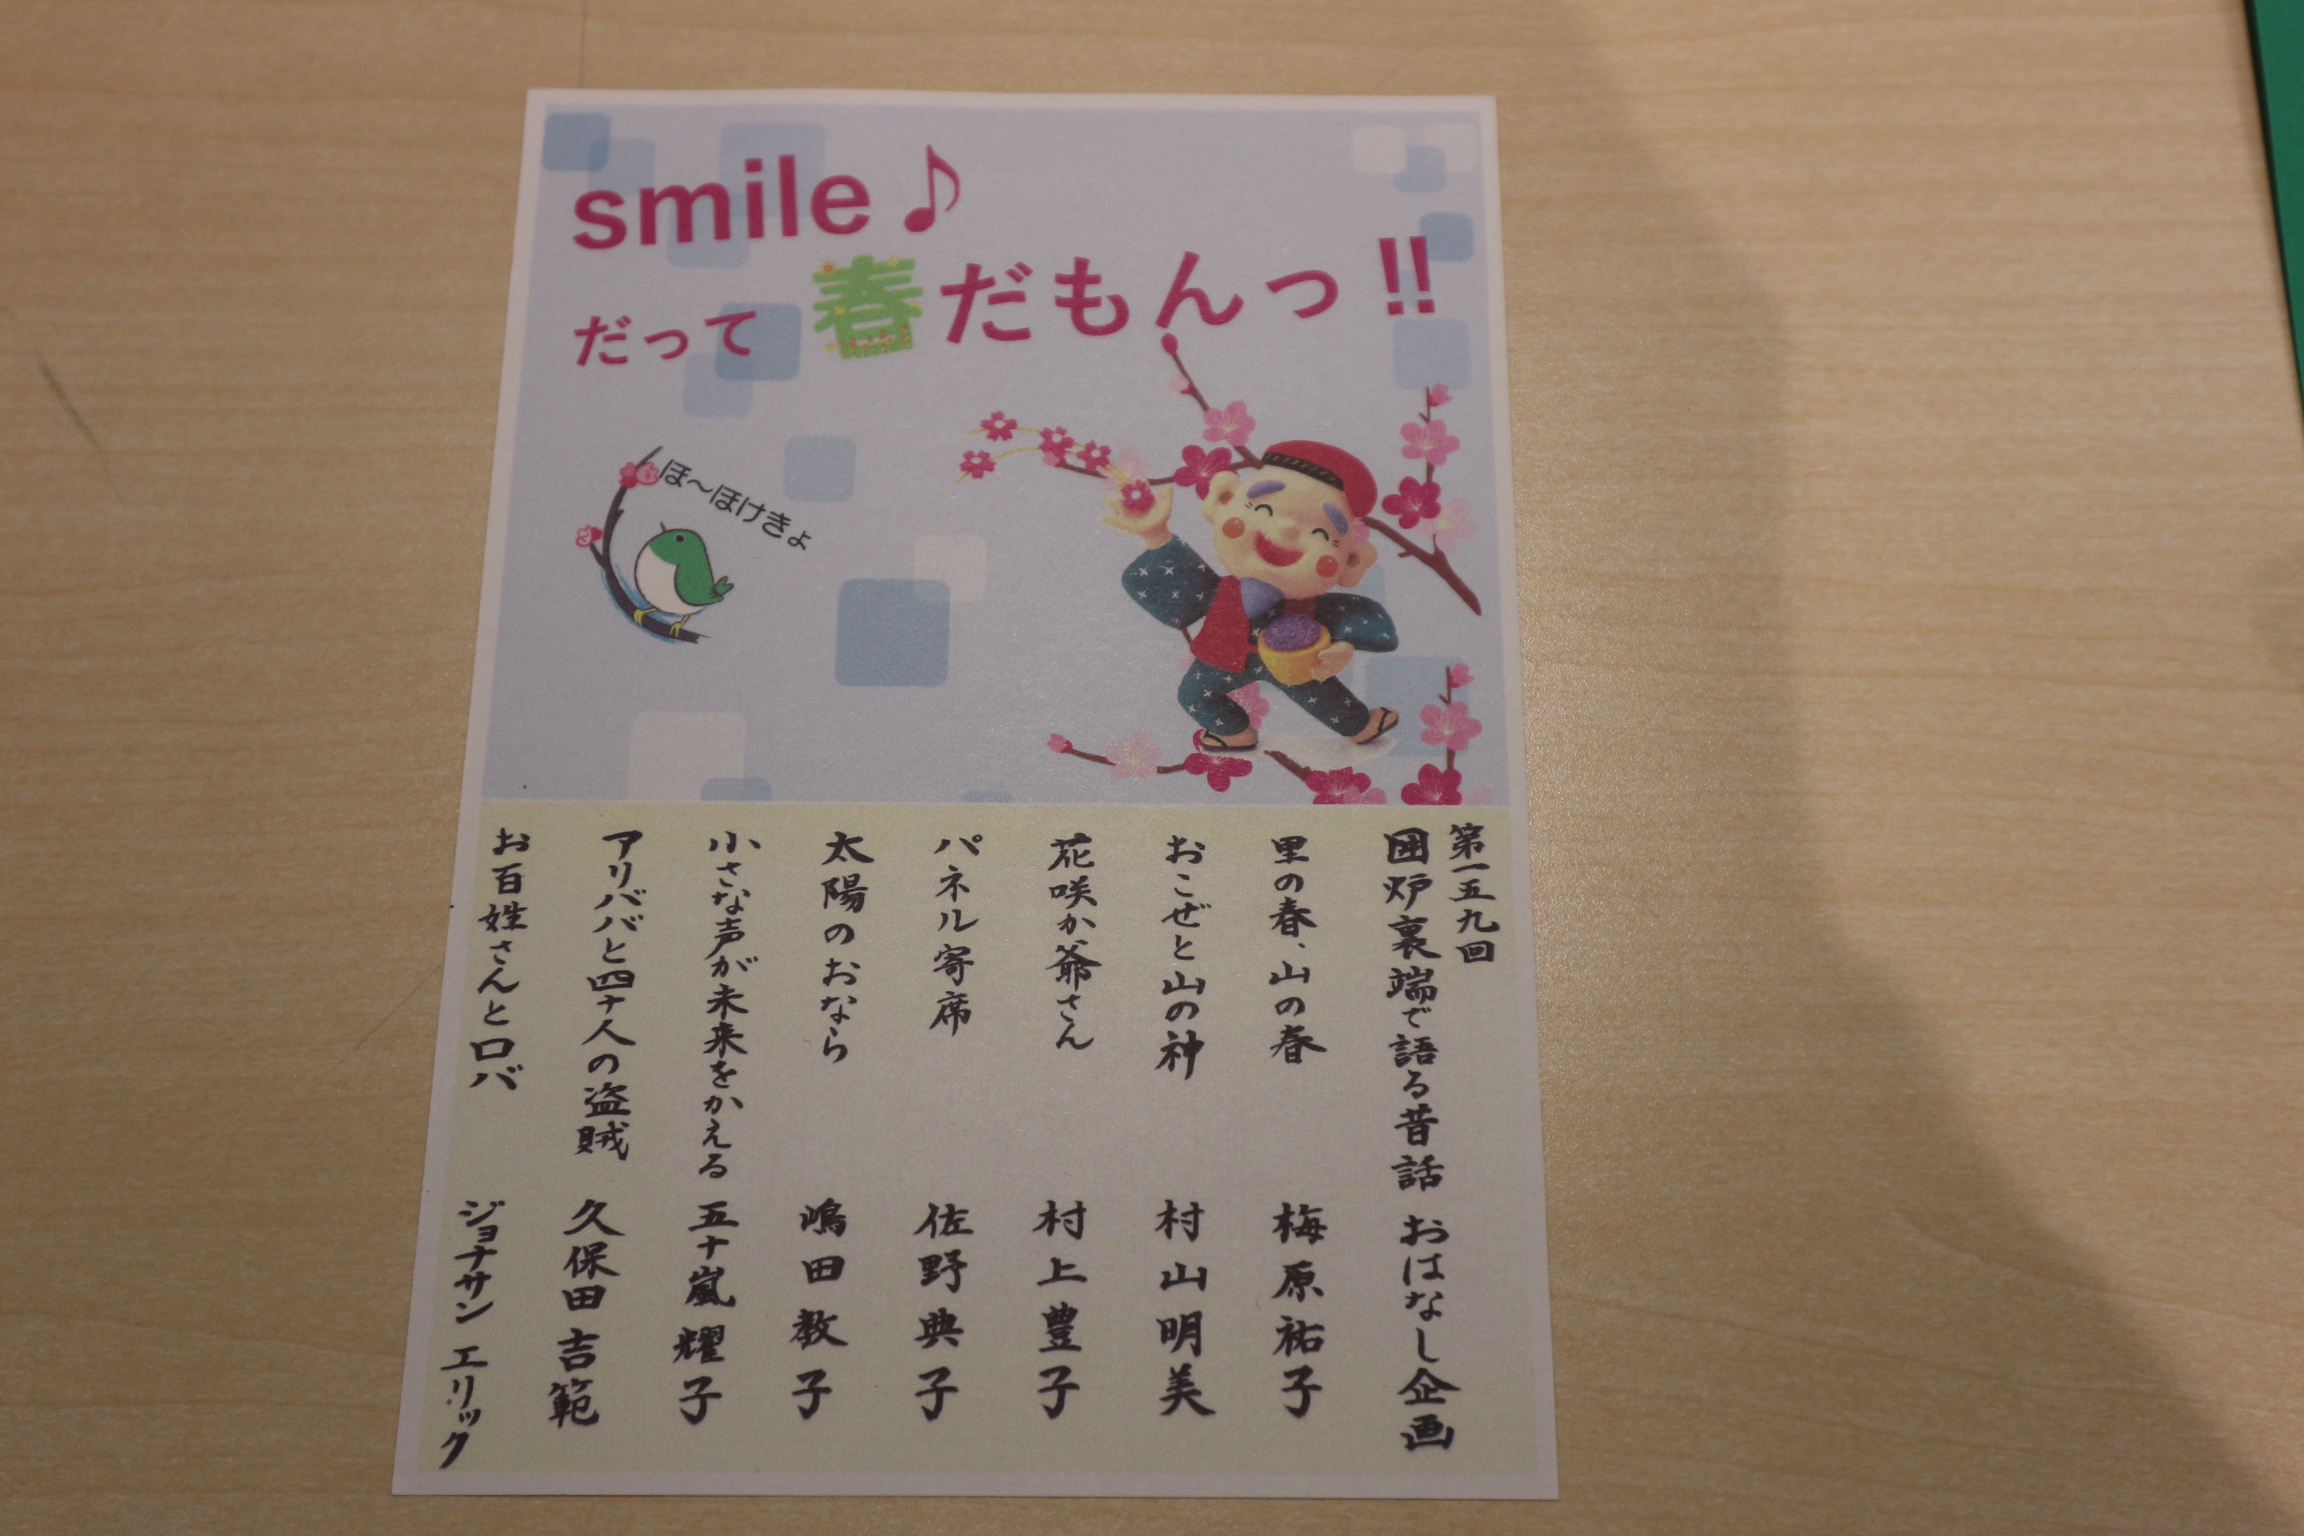 smile♪
だって春だもんっ!!
ほ〜ほけきょ
第一五九回
囲炉裏端で語る昔話 おはなし企画
里の春、山の春 梅原祐子
おこぜと山の神 村山明美
花咲か爺さん 村上豊子
パネル寄席 佐野典子
太陽のおなら 嶋田教子
小さな声が未来をかえる 五十嵐耀子
アリババと四十人の盗賊 久保田吉範
お百姓さんとロバ ジョナサン エリック